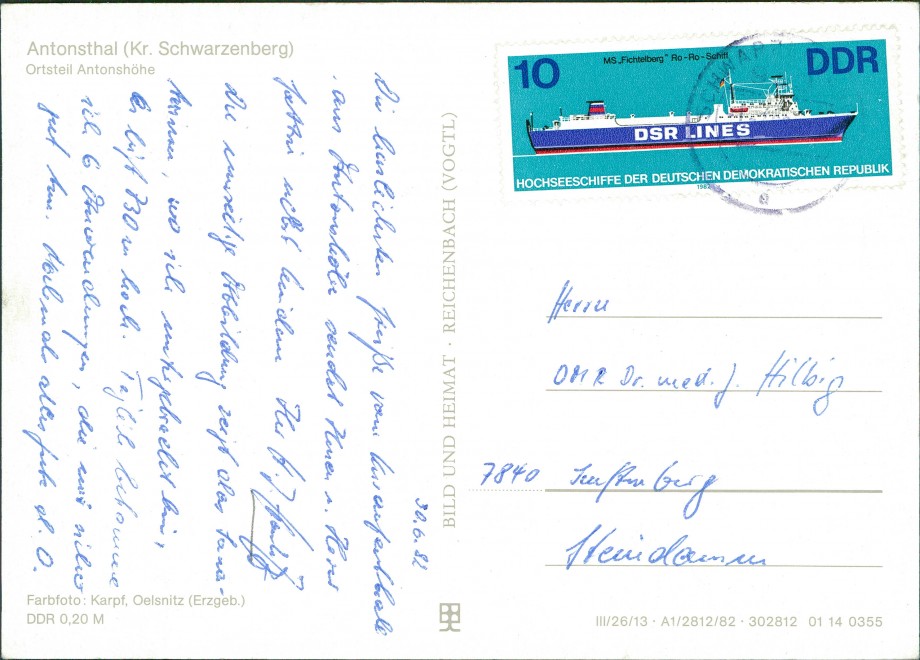 Antonsthal (Kr. Schwarzenberg)
Ortsteil Antonshöhe
30.6.82
Die herzlichsten Grüße vom Kuraufenthalt
aus Antonshöhe sendet Ihnen u. Ihrer
Gattin nebst Kindern Ihr
Die umseitige Abbildung zeigt das Sana-
torium, wo ich untergebracht bin,
Es liegt 730 m hoch. Täglich bekomme
ich 6 Anwendungen, die mir sicher
gut tun. Nochmals alles Gute d. O.
Farbfoto: Karpf, Oelsnitz (Erzgeb.)
DDR 0,20 M
BILD UND HEIMAT · REICHENBACH (VOGTL)
10
MS „Fichtelberg" Ro-Ro-Schiff
DDR
DSR LINES
HOCHSEESCHIFFE DER DEUTSCHEN DEMOKRATISCHEN REPUBLIK
1982
SCHWARZ
a
Herrn
OMR Dr. med. J. Hilbig
7840 Senftenberg
Steindamm
III/26/13 · A1/2812/82 · 302812 01 14 0355